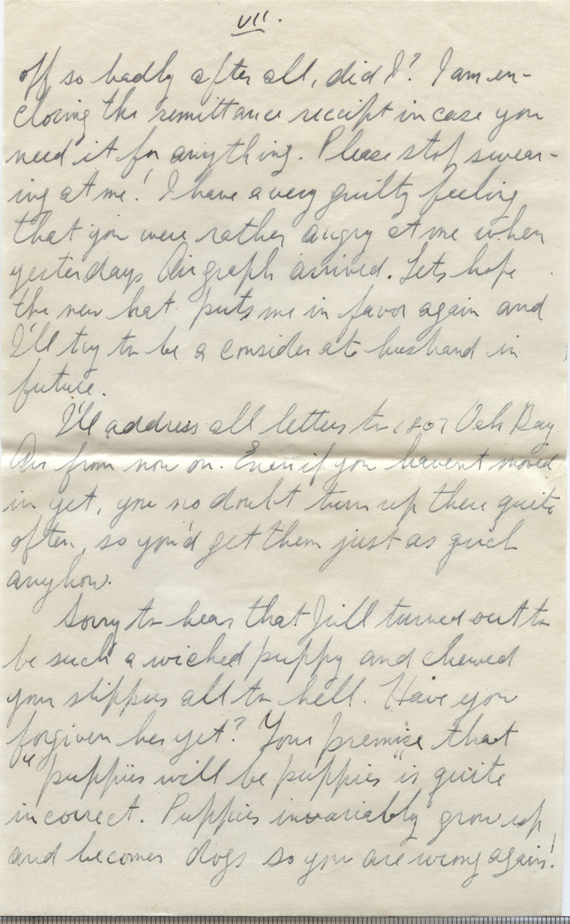 VII.
off so badly after all, did I? I am en-
closing the remittance receipt in case you
need it for anything. Please stop swear-
ing at me! I have a very guilty feeling
that you were rather angry at me when
yesterdays Airgraph arrived. Lets hope
the new hat puts me in favor again and
I'll try to be a considerate husband in
future.
I'll address all letters to 1807 Oak Bay
Ave from now on. Even if you havent moved
in yet, you no doubt turn up there quite
often, so you'd get them just as quick
anyhow.
Sorry to hear that Jill turned out to
be such a wicked puppy and chewed
your slippers all to hell. Have you
forgiven her yet? Your premise that
"puppies will be puppies" is quite
incorrect. Puppies invariably grow up
and becomes dogs so you are wrong again!